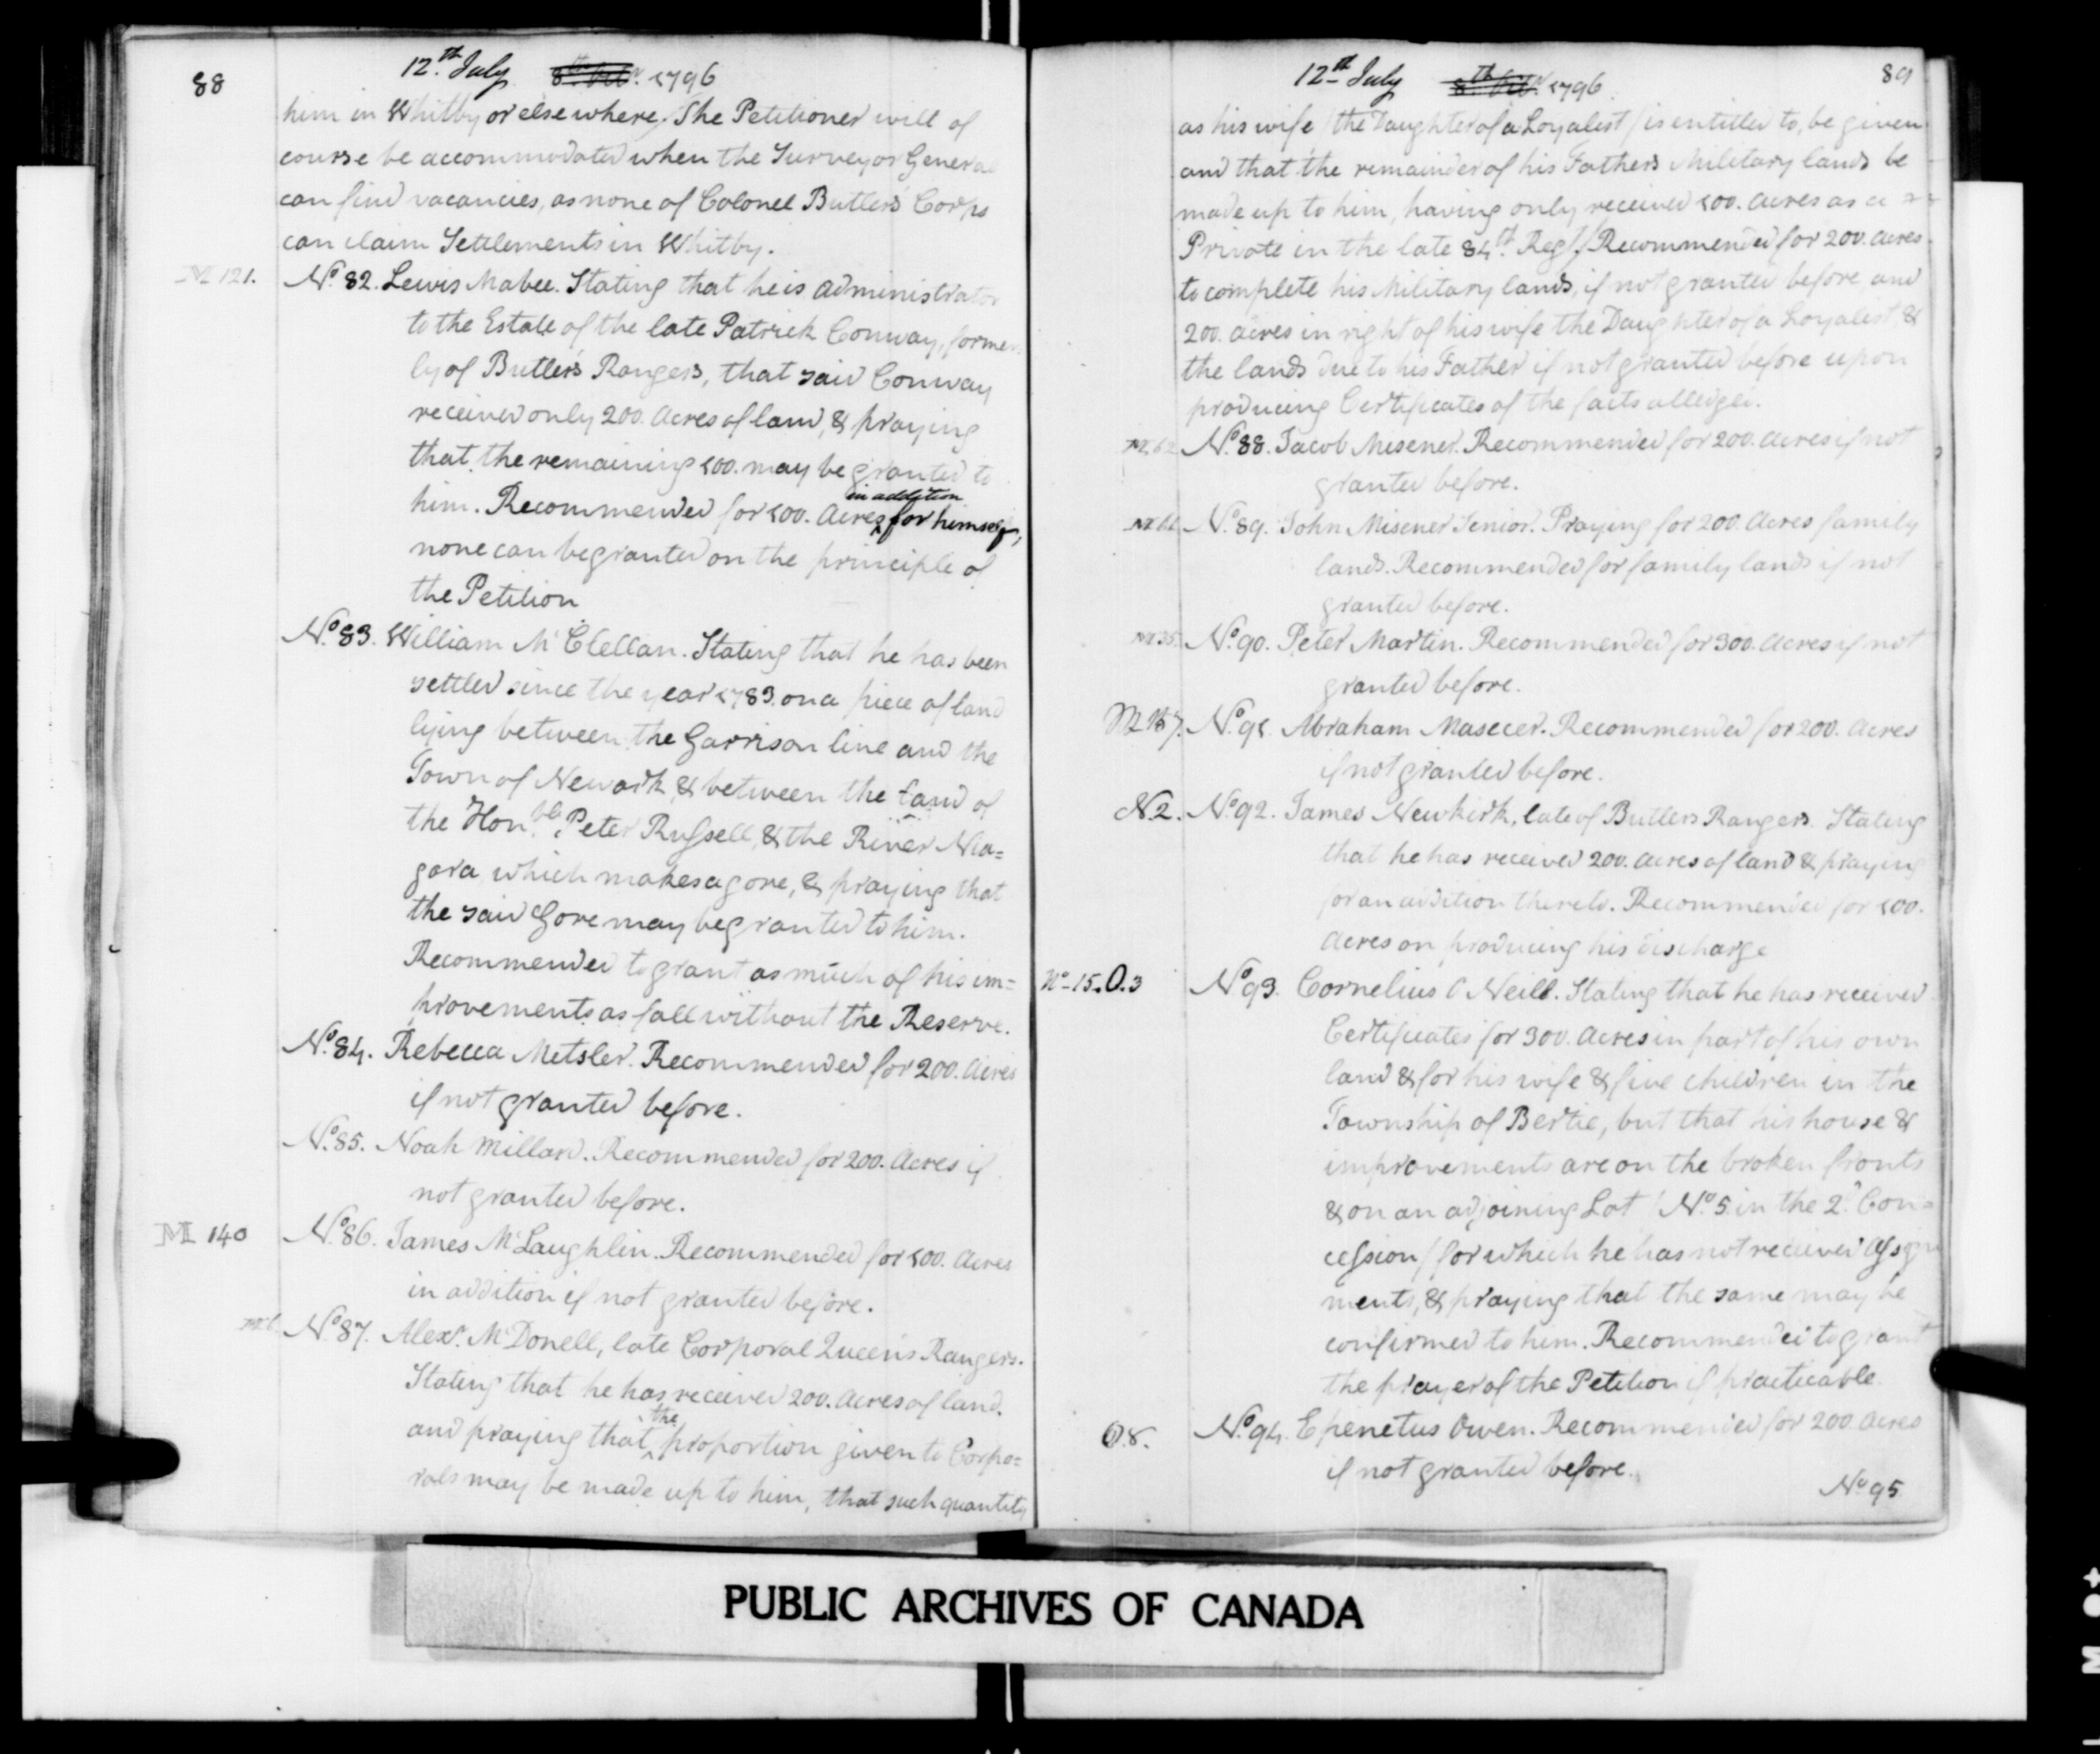 88
12.th July 8th Oct.r 1796
him in Whitby or elsewhere. The Petitioner will of
course be accommodated when the Surveyor General
can find vacancies, as none of Colonel Butler's Corps
can claim Settlements in Whitby.
M 121. No. 82. Lewis Mabee. Stating that he is administrator
to the Estate of the late Patrick Conway, former-
ly of Butler's Rangers, that said Conway
received only 200. Acres of land, & praying
that the remaining 100. may be granted to
him. Recommended for 100. Acres in addition for himself,
none can be granted on the principle of
the Petition
No. 83. William McClellan. Stating that he has been
settled since the year 1783. on a piece of land
lying between the Garrison line and the
Town of Newark, & between the Land of
the Honble. Peter Russell, & the River Nia=
gara which makes a gore, & praying that
the said Gore may be granted to him.
Recommended to grant as much of his im=
provements as fall without the Reserve.
No. 84. Rebecca Metsler. Recommended for 200. Acres
if not granted before.
No. 85. Noah Millard. Recommended for 200. Acres if
not granted before.
M 140 No. 86. James McLaughlin. Recommended for 100. Acres
in addition if not granted before.
No. 87. Alexr. McDonell, late Corporal Queen's Rangers.
Stating that he has received 200. Acres of land.
and praying that the proportion given to Corpo=
rals may be made up to him, that such quantity
12th July 8th Oct.r 1796. 89
as his wife / the Daughter of a Loyalist / is entitled to, be given
and that the remainder of his Fathers Military lands be
made up to him, having only received 100. Acres as a
Private in the late 84th. Regt. Recommended for 200. Acres
to complete his Military lands, if not granted before and
200. Acres in right of his wife the Daughter of a Loyalist, &
the lands due to his Father if not granted before upon
producing Certificates of the facts alledged.
M 62 No. 88. Jacob Misener. Recommended for 200. Acres if not
granted before.
No. 89. John Misener Senior. Praying for 200. Acres family
lands. Recommended for family lands if not
granted before.
M 35. No. 90. Peter Martin. Recommended for 300. Acres if not
granted before.
No. 91. Abraham Masecer. Recommended for 200. Acres
if not granted before.
N. 2. No. 92. James Newkirk, late of Butlers Rangers. Stating
that he has received 200. Acres of land & praying
for an addition thereto. Recommended for 100.
Acres on producing his discharge
No-15. O. 3 No. 93. Cornelius O Neill. Stating that he has received
Certificates for 300. Acres in part of his own
land & for his wife & five children in the
Township of Bertie, but that his house &
improvements are on the broken fronts
& on an adjoining Lot / No. 5 in the 2d. Con=
cession / for which he has not received Assign
ments, & praying that the same may be
confirmed to him. Recommended to grant
the prayer of the Petition if practicable.
O. 8. No. 94. Epenetus Owen. Recommended for 200. Acres
if not granted before.
No 95
PUBLIC ARCHIVES OF CANADA